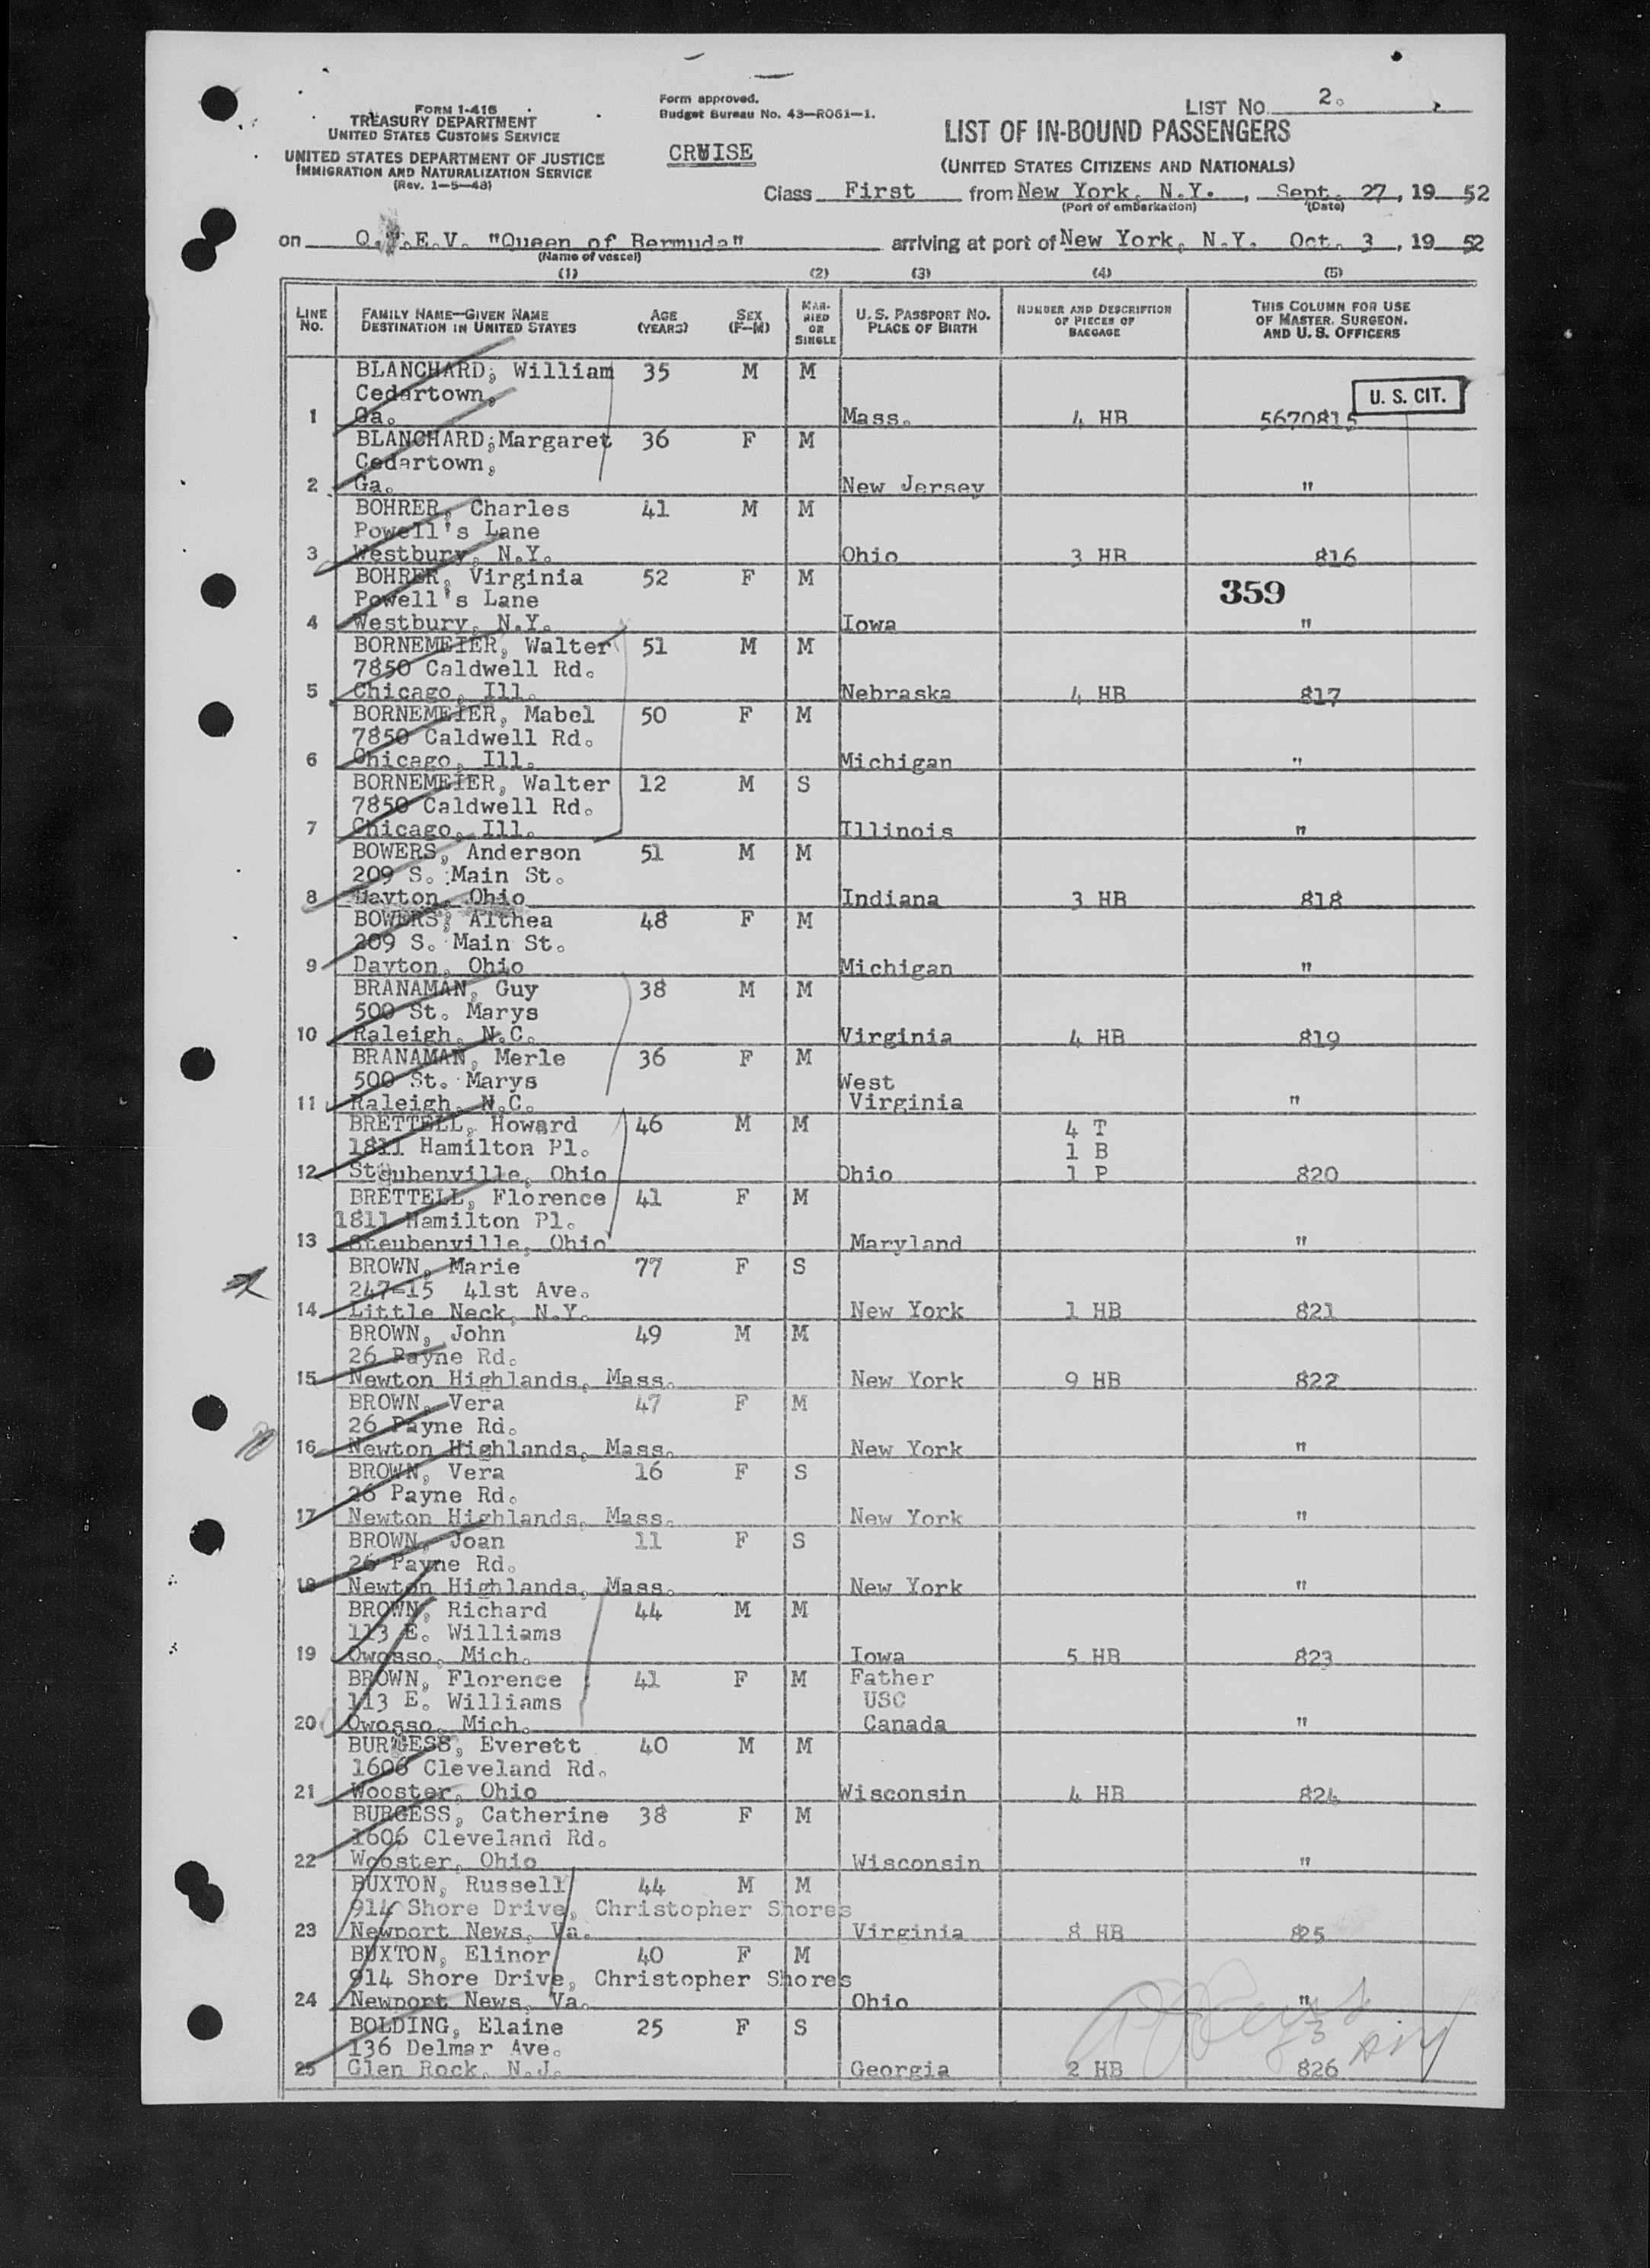 FORM I-416
TREASURY DEPARTMENT
UNITED STATES CUSTOMS SERVICE
UNITED STATES DEPARTMENT OF JUSTICE
IMMIGRATION AND NATURALIZATION SERVICE
(Rev. 1-5-48)
Form approved.
Budget Bureau No. 43-R061-1.
CRUISE
LIST NO. 2.
LIST OF IN-BOUND PASSENGERS
(UNITED STATES CITIZENS AND NATIONALS)
Class First from New York, N.Y., Sept. 27, 1952
(Port of embarkation) (Date)
on "Queen of Bermuda" arriving at port of New York, N.Y. Oct. 3, 1952
(Name of vessel)
(1) (2) (3) (4) (5)
LINE No. FAMILY NAME—GIVEN NAME DESTINATION IN UNITED STATES AGE (YEARS) SEX (F—M) MARRIED OR SINGLE U. S. PASSPORT NO. PLACE OF BIRTH NUMBER AND DESCRIPTION OF PIECES OF BAGGAGE THIS COLUMN FOR USE OF MASTER, SURGEON, AND U. S. OFFICERS
BLANCHARD, William 35 M M
Cedartown, U. S. CIT.
1 Ga. Mass. 4 HB 5670815
BLANCHARD, Margaret 36 F M
Cedartown,
2 Ga. New Jersey "
BOHRER, Charles 41 M M
Powell's Lane
3 Westbury, N.Y. Ohio 3 HB 816
BOHRER, Virginia 52 F M 359
Powell's Lane
4 Westbury, N.Y. Iowa "
BORNEMEIER, Walter 51 M M
7850 Caldwell Rd.
5 Chicago, Ill. Nebraska 4 HB 817
BORNEMEIER, Mabel 50 F M
7850 Caldwell Rd.
6 Chicago, Ill. Michigan "
BORNEMEIER, Walter 12 M S
7850 Caldwell Rd.
7 Chicago, Ill. Illinois "
BOWERS, Anderson 51 M M
209 S. Main St.
8 Dayton, Ohio Indiana 3 HB 818
BOWERS, Althea 48 F M
209 S. Main St.
9 Dayton, Ohio Michigan "
BRANAMAN, Guy 38 M M
500 St. Marys
10 Raleigh, N.C. Virginia 4 HB 819
BRANAMAN, Merle 36 F M
500 St. Marys West
11 Raleigh, N.C. Virginia "
BRETTELL, Howard 46 M M 4 T
1811 Hamilton Pl. 1 B
12 Steubenville, Ohio Ohio 1 P 820
BRETTELL, Florence 41 F M
1811 Hamilton Pl.
13 Steubenville, Ohio Maryland "
BROWN, Marie 77 F S
247-15 41st Ave.
14 Little Neck, N.Y. New York 1 HB 821
BROWN, John 49 M M
26 Payne Rd.
15 Newton Highlands, Mass. New York 9 HB 822
BROWN, Vera 47 F M
26 Payne Rd.
16 Newton Highlands, Mass. New York "
BROWN, Vera 16 F S
26 Payne Rd.
17 Newton Highlands, Mass. New York "
BROWN, Joan 11 F S
26 Payne Rd.
18 Newton Highlands, Mass. New York "
BROWN, Richard 44 M M
113 E. Williams
19 Owosso, Mich. Iowa 5 HB 823
BROWN, Florence 41 F M Father
113 E. Williams USC
20 Owosso, Mich. Canada "
BURGESS, Everett 40 M M
1606 Cleveland Rd.
21 Wooster, Ohio Wisconsin 4 HB 824
BURGESS, Catherine 38 F M
1606 Cleveland Rd.
22 Wooster, Ohio Wisconsin "
BUXTON, Russell 44 M M
914 Shore Drive, Christopher Shores
23 Newport News, Va. Virginia 8 HB 825
BUXTON, Elinor 40 F M
914 Shore Drive, Christopher Shores
24 Newport News, Va. Ohio "
BOLDING, Elaine 25 F S
136 Delmar Ave.
25 Glen Rock, N.J. Georgia 2 HB 826